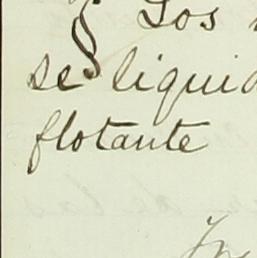 § Los
se liquid
flotante